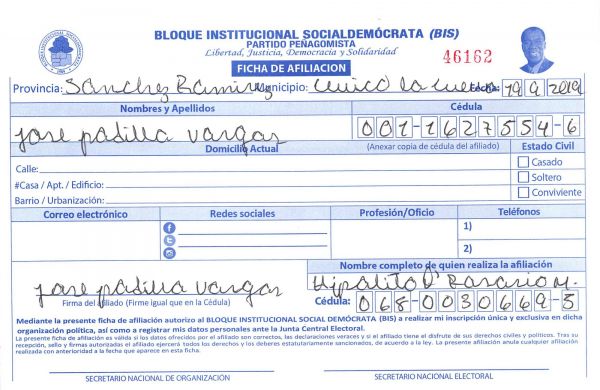 BLOQUE INSTITUCIONAL SOCIALDEMÓCRATA (BIS)
PARTIDO PEÑAGOMISTA
Libertad, Justicia, Democracia y Solidaridad
46162
FICHA DE AFILIACION
Provincia: Sanchez Ramirez Municipio: la cueva Fecha: 19 9 2019
Nombres y Apellidos Cédula
jose padilla vargas 001-1627554-6
Domicilio Actual (Anexar copia de cédula del afiliado) Estado Civil
Calle: Casado
#Casa / Apt. / Edificio: Soltero
Barrio / Urbanización: Conviviente
Correo electrónico Redes sociales Profesión/Oficio Teléfonos
1)
2)
Nombre completo de quien realiza la afiliación
jose padilla vargas Hipolito Rosario M.
Firma del afiliado (Firme igual que en la Cédula) Cédula: 068-0030669-5
Mediante la presente ficha de afiliación autorizo al BLOQUE INSTITUCIONAL SOCIAL DEMÓCRATA (BIS) a realizar mi inscripción única y exclusiva en dicha
organización política, así como a registrar mis datos personales ante la Junta Central Electoral.
La presente ficha de afiliación es válida si los datos ofrecidos por el afiliado son correctos, las declaraciones veraces y si el afiliado tiene el disfrute de sus derechos civiles y políticos. Tras su
recepción, sello y firmas autorizadas el afiliado ejercerá todos los derechos y los deberes estatutariamente sancionados, de acuerdo a la ley. La presente afiliación anula cualquier afiliación
realizada con anterioridad a la fecha que aparece en esta ficha.
SECRETARIO NACIONAL DE ORGANIZACIÓN SECRETARIO NACIONAL ELECTORAL